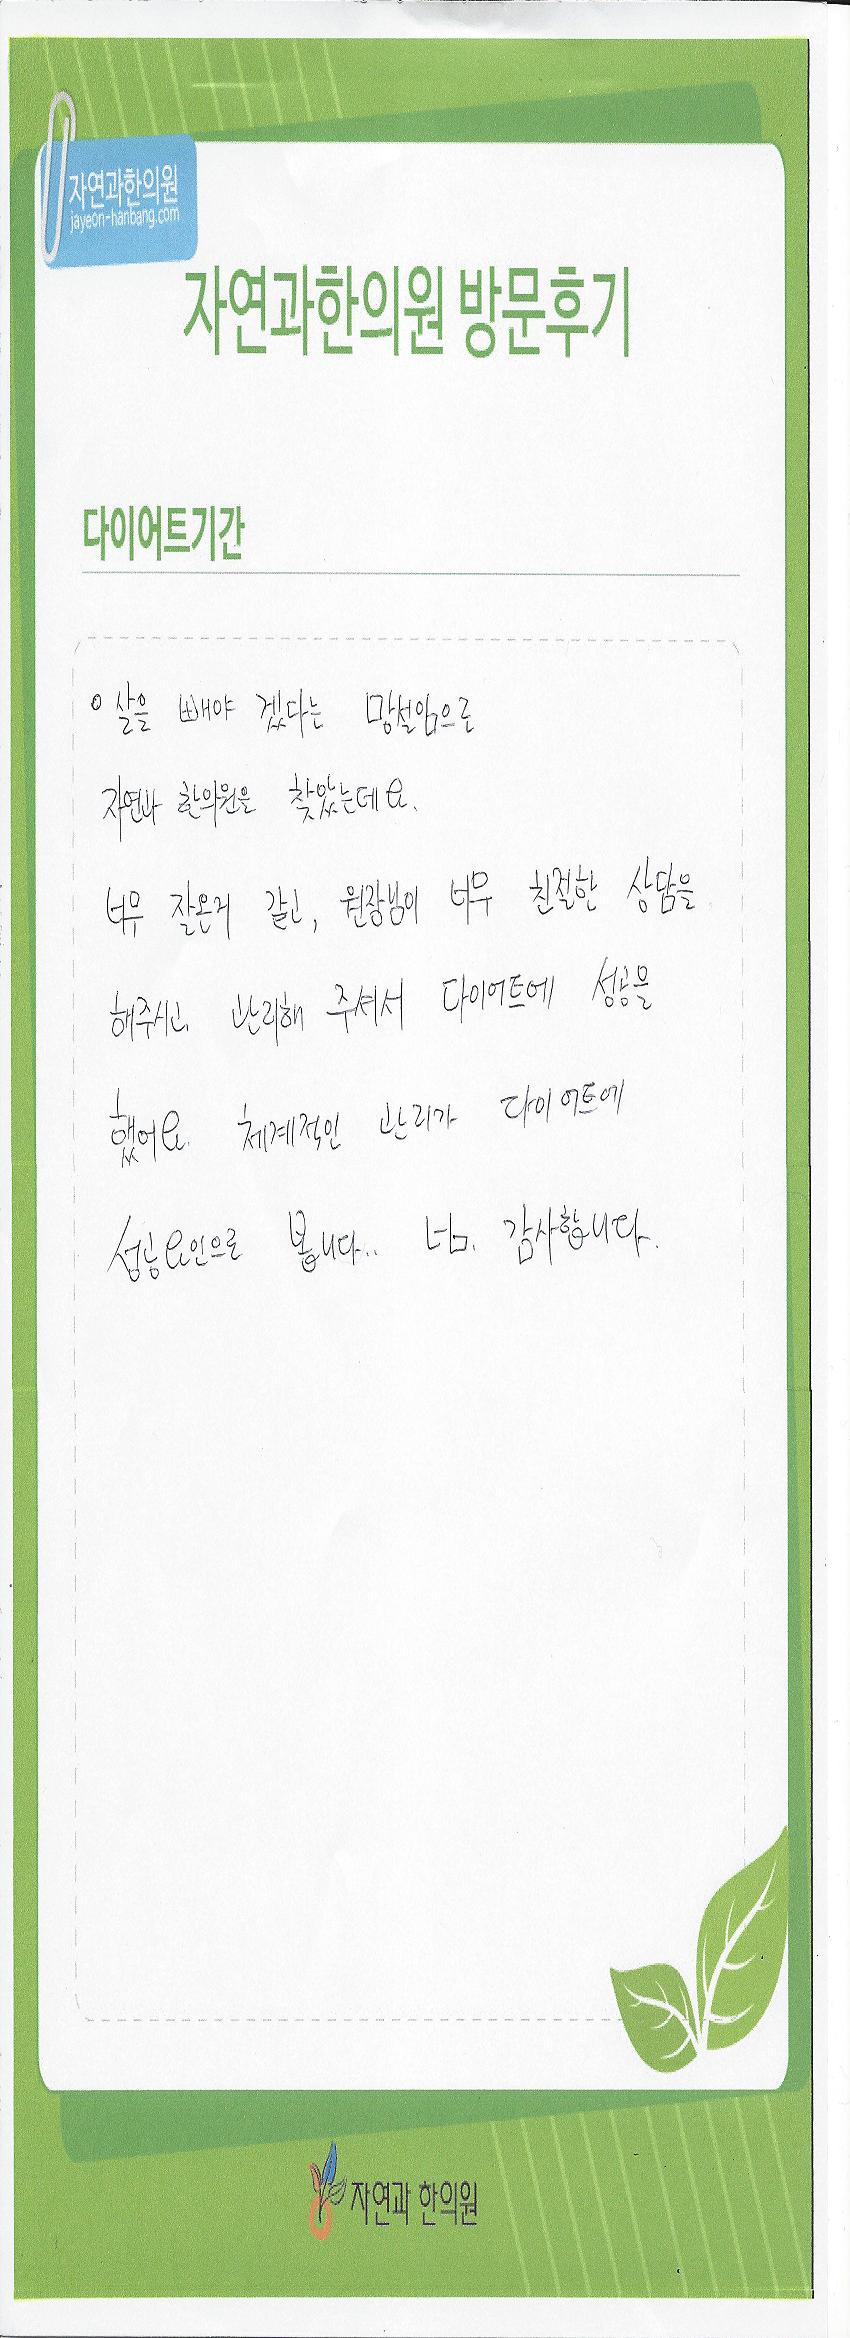 자연과한의원
jayeon-hanbang.com
자연과한의원 방문후기
다이어트기간
살을 빼야 겠다는 망설임으로
자연과 한의원을 찾았는데요.
너무 잘온거 같고, 원장님이 너무 친절한 상담을
해주시고 관리해 주셔서 다이어트에 성공을
했어요. 체계적인 관리가 다이어트에
성공요인으로 봅니다.. 넘. 감사합니다.
자연과 한의원